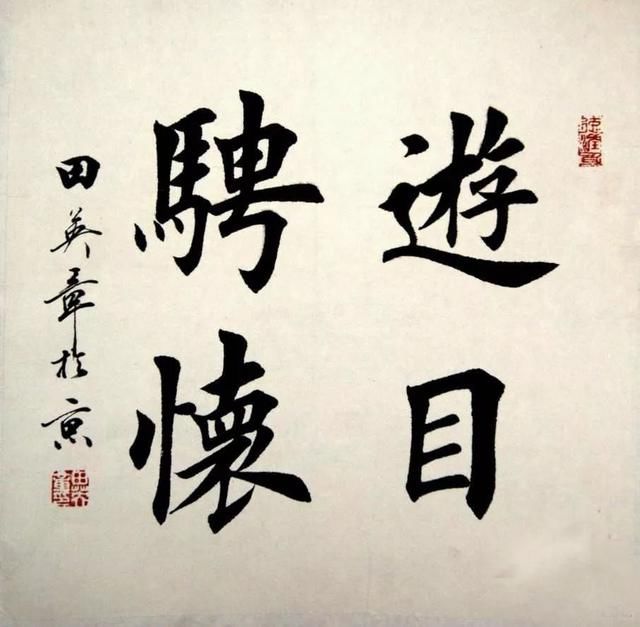 遊目
騁懷
田英章於京